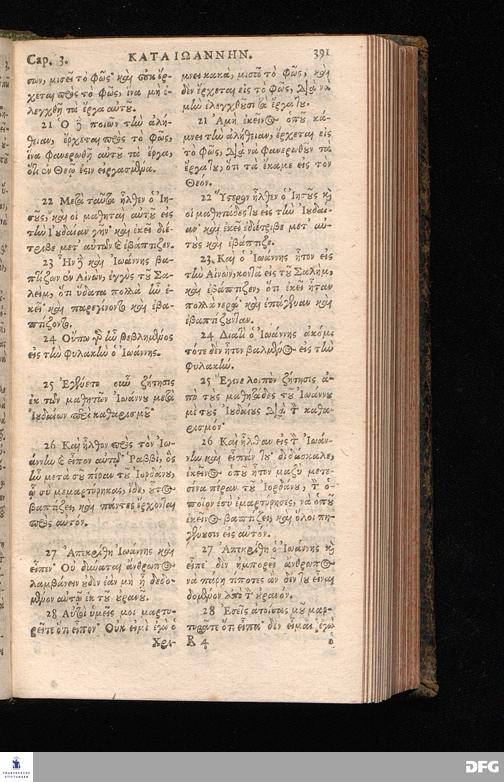 Cap. 3. ΚΑΤΑ ΙΩΑΝΝΗΝ. 391
σων, μισεῖ τὸ φῶς· καὶ οὐκ ἔρ-
χεται πρὸς τὸ φῶς, ἵνα μὴ ἐ-
λεγχθῇ τὰ ἔργα αὐτοῦ.
21 Ὁ δὲ ποιῶν τὴν ἀλή-
θειαν, ἔρχεται πρὸς τὸ φῶς,
ἵνα φανερωθῇ αὐτοῦ τὰ ἔργα,
ὅτι ἐν Θεῷ ἐστιν εἰργασμένα.
22 Μετὰ ταῦτα ἦλθεν ὁ Ἰη-
σοῦς καὶ οἱ μαθηταὶ αὐτοῦ εἰς
τὴν Ἰουδαίαν γῆν· καὶ ἐκεῖ διέ-
τριβε μετ' αὐτῶν καὶ ἐβάπτιζεν.
23 Ἦν δὲ καὶ Ἰωάννης βα-
πτίζων ἐν Αἰνὼν, ἐγγὺς τοῦ Σα-
λεὶμ, ὅτι ὕδατα πολλὰ ἦν ἐ-
κεῖ· καὶ παρεγίνοντο καὶ ἐβα-
πτίζοντο.
24 Οὔπω γὰρ ἦν βεβλημένος
εἰς τὴν φυλακὴν ὁ Ἰωάννης.
25 Ἐγένετο οὖν ζήτησις
ἐκ τῶν μαθητῶν Ἰωάννου μετὰ
Ἰουδαίων περὶ καθαρισμοῦ·
26 Καὶ ἦλθον πρὸς τὸν Ἰω-
άννην καὶ εἶπον αὐτῷ· Ῥαββὶ, ὃς
ἦν μετὰ σοῦ πέραν τοῦ Ἰορδάνου,
ᾧ σὺ μεμαρτύρηκας, ἴδε, οὗτος
βαπτίζει, καὶ πάντες ἔρχονται
πρὸς αὐτόν.
27 Ἀπεκρίθη Ἰωάννης καὶ
εἶπεν· Οὐ δύναται ἄνθρωπος
λαμβάνειν οὐδὲν ἐὰν μὴ ᾖ δεδο-
μένον αὐτῷ ἐκ τοῦ οὐρανοῦ.
28 Αὐτοὶ ὑμεῖς μοι μαρτυ-
ρεῖτε ὅτι εἶπον· Οὐκ εἰμὶ ἐγὼ ὁ
Χρι-
μνει κακὰ, μισεῖ τὸ φῶς, καὶ
δὲν ἔρχεται εἰς τὸ φῶς, διὰ νὰ
μὴν ἐλεγχθοῦσι τὰ ἔργα του.
21 Ἀμὴ ἐκεῖνος ὁποῦ κά-
μνει τὴν ἀλήθειαν, ἔρχεται εἰς
τὸ φῶς, διὰ νὰ φανερωθοῦν τὰ
ἔργα του, ὅτι τὰ ἔκαμε εἰς τὸν
Θεόν.
22 Ὕστερον ἦλθεν ὁ Ἰησοῦς καὶ
οἱ μαθητάδες του εἰς τὴν Ἰουδαί-
αν· καὶ ἐκεῖ ἐδιέτριβε μετ' αὐ-
τοὺς καὶ ἐβάπτιζε.
23 Καὶ ὁ Ἰωάννης ἦτον εἰς
τὴν Αἰνὼν, κοντὰ εἰς τοῦ Σαλὴμ,
καὶ ἐβάπτιζεν, ὅτι ἐκεῖ ἦταν
πολλὰ νερά· καὶ ἐπήγαιναν καὶ
ἐβαπτίζουνταν.
24 Διατὶ ὁ Ἰωάννης ἀκόμι
τότε δὲν ἦτον βαλμένος εἰς τὴν
φυλακήν.
25 Ἔγινε λοιπὸν ζήτησις ἀ-
πὸ τοὺς μαθητάδες τοῦ Ἰωάννου
μὲ τοὺς Ἰουδαίους διὰ τὸν καθα-
ρισμόν·
26 Καὶ ἦλθαν εἰς τὸν Ἰωάν-
νην καὶ εἶπάν του· διδάσκαλε,
ἐκεῖνος ὁποῦ ἦτον μαζὺ μετε-
σένα πέραν τοῦ Ἰορδάνου, τὸν ὁ-
ποῖον ἐσὺ ἐμαρτύρησες, νὰ ὁποῦ
ἐκεῖνος βαπτίζει, καὶ ὅλοι πη-
γαίνουσιν εἰς αὐτόν.
27 Ἀπεκρίθη ὁ Ἰωάννης καὶ
εἶπε· δὲν ἠμπορεῖ ἄνθρωπος
νὰ πάρῃ τίποτες ἂν δὲν τοῦ εἶναι
δομένον ἀπὸ τὸν οὐρανόν.
28 Ἐσεῖς ἀτοίσας μοῦ μαρ-
τυρᾶτε ὅτι εἶπα· δὲν εἶμαι ἐγὼ
R 4 ὁ
DFG